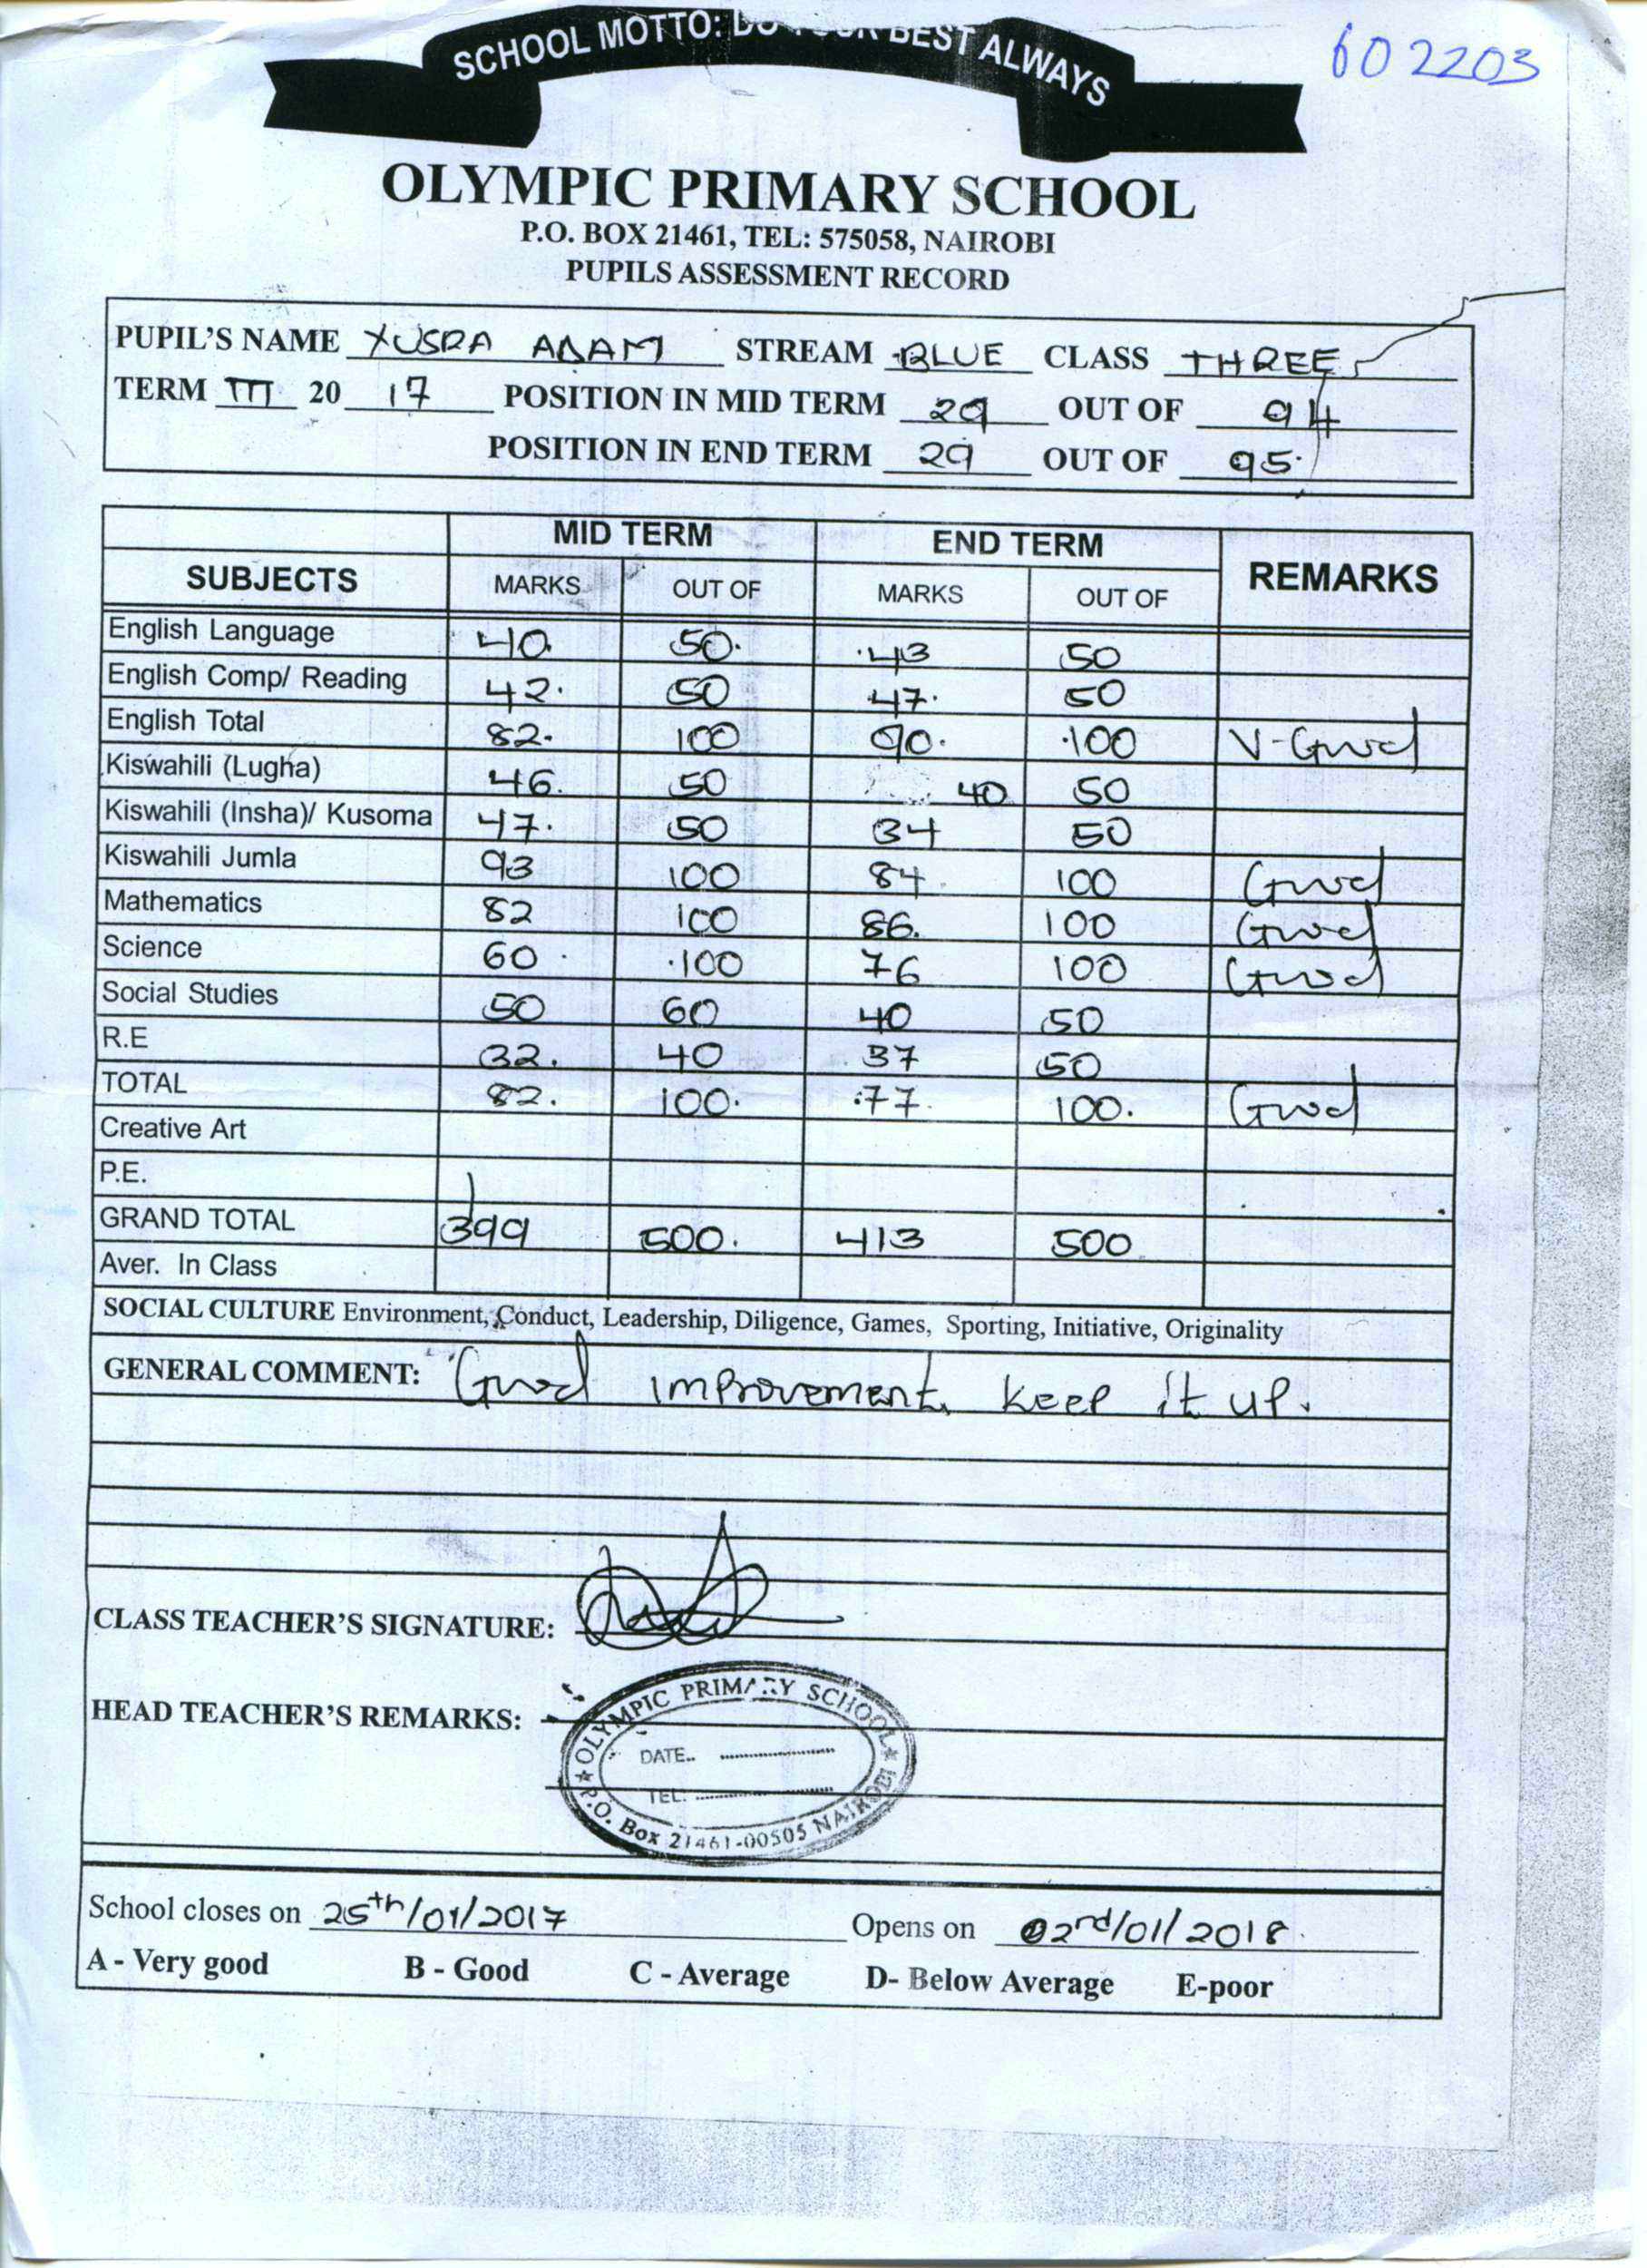 SCHOOL MOTTO: DO YOUR BEST ALWAYS
602203
OLYMPIC PRIMARY SCHOOL
P.O. BOX 21461, TEL: 575058, NAIROBI
PUPILS ASSESSMENT RECORD
PUPIL'S NAME YUSRA ADAM STREAM BLUE CLASS THREE
TERM III 20 17 POSITION IN MID TERM 29 OUT OF 94
POSITION IN END TERM 29 OUT OF 95
SUBJECTS MID TERM END TERM REMARKS
MARKS OUT OF MARKS OUT OF
English Language 40 50 43 50
English Comp/ Reading 42 50 47 50
English Total 82 100 90 100 V-Good
Kiswahili (Lugha) 46 50 40 50
Kiswahili (Insha)/ Kusoma 47 50 34 50
Kiswahili Jumla 93 100 84 100 Good
Mathematics 82 100 86 100 Good
Science 60 100 76 100 Good
Social Studies 50 60 40 50
R.E 32 40 37 50
TOTAL 82 100 77 100 Good
Creative Art
P.E.
GRAND TOTAL 399 500 413 500
Aver. In Class
SOCIAL CULTURE Environment, Conduct, Leadership, Diligence, Games, Sporting, Initiative, Originality
GENERAL COMMENT: Good improvement, keep it up.
CLASS TEACHER'S SIGNATURE:
HEAD TEACHER'S REMARKS:
★ OLYMPIC PRIMARY SCHOOL ★
DATE..
TEL.
P.O. Box 21461-00505 NAIROBI
School closes on 25th/01/2017 Opens on 02rd/01/2018
A - Very good B - Good C - Average D- Below Average E-poor